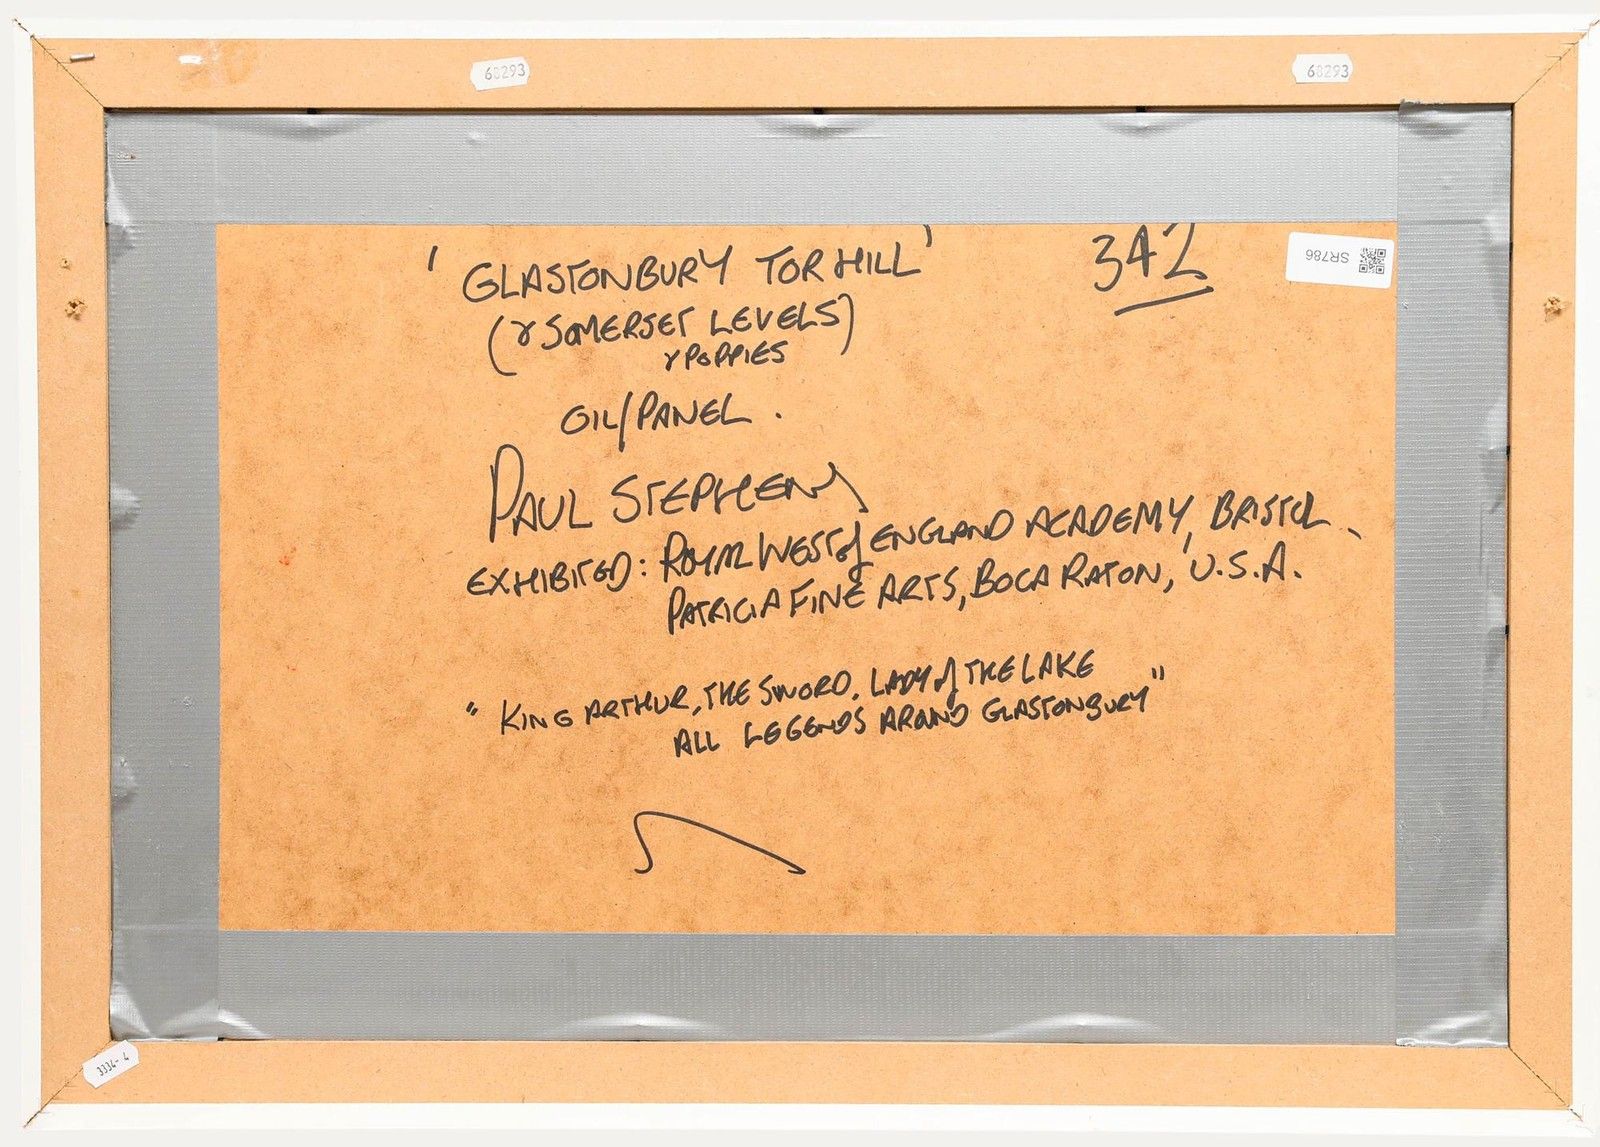 68293
68293
'GLASTONBURY TOR HILL'
342
SR786
(& SOMERSET LEVELS)
& POPPIES
OIL/PANEL.
PAUL STEPHENS
EXHIBITED: ROYAL WEST of ENGLAND ACADEMY, BRISTOL.
PATRICIA FINE ARTS, BOCA RATON, U.S.A.
"KING ARTHUR, THE SWORD, LADY of THE LAKE
ALL LEGENDS AROUND GLASTONBURY"
3334-4